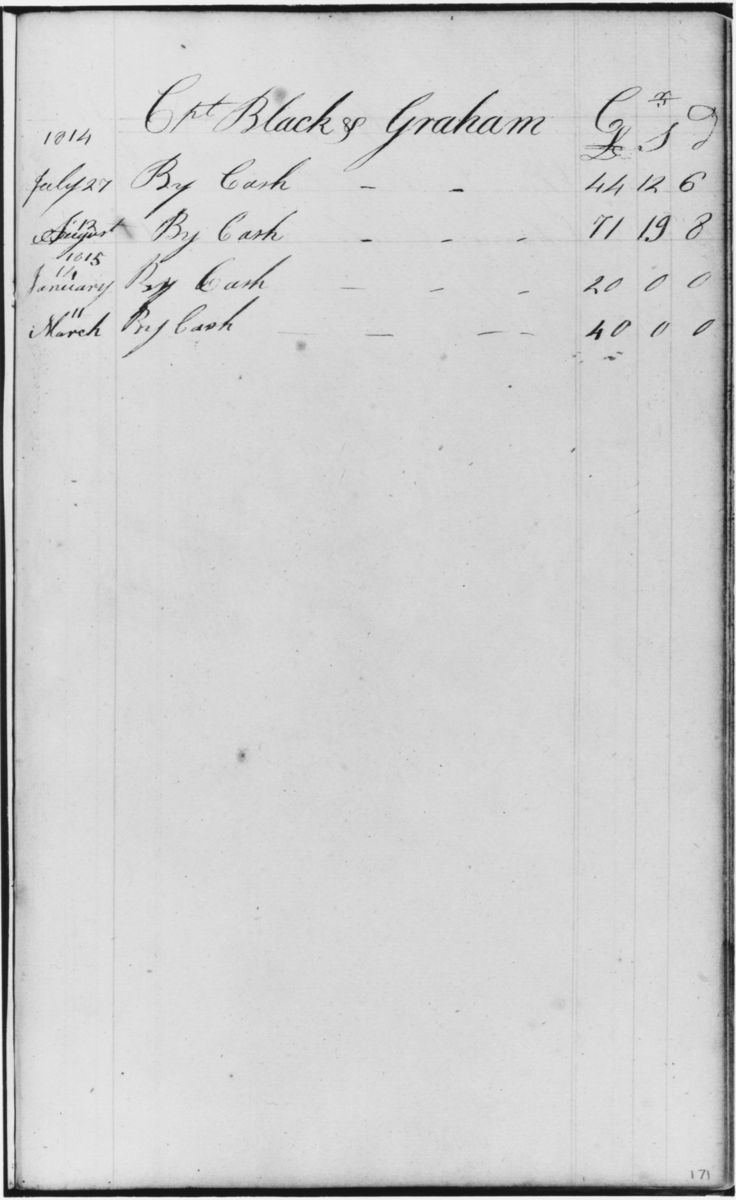 Cpt Black & Graham Cr
1814 £ S d
July 27 By Cash - - 44 12 6
August 13 By Cash - - - 71 19 8
1815
January 14 By Cash - - - 20 0 0
March 11 By Cash - - - - 40 0 0
171